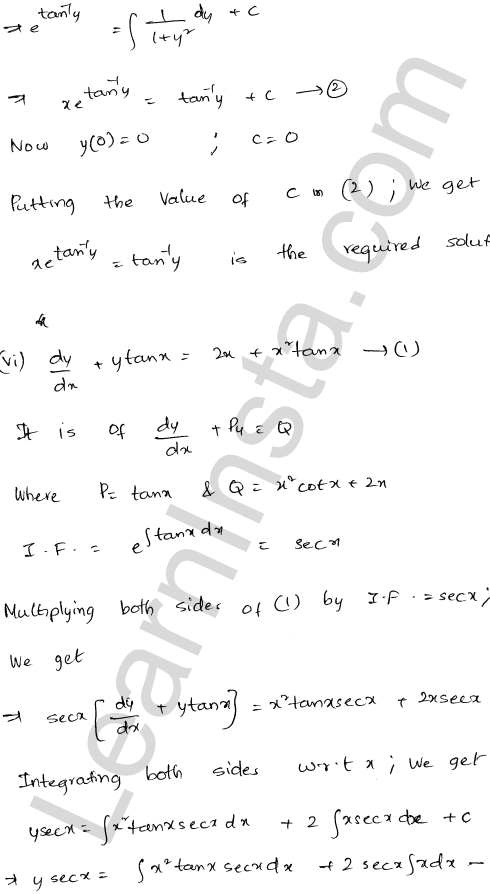 ⇒ e^{tan⁻¹y} = ∫ 1/(1+y²) dy + c
⇒ xe^{tan⁻¹y} = tan⁻¹y + c → ②
Now y(0) = 0 ; c = 0
Putting the value of c in (2) ; we get
xe^{tan⁻¹y} = tan⁻¹y is the required solut
(vi) dy/dx + y tanx = 2x + x² tanx → (1)
It is of dy/dx + Py = Q
where P = tanx & Q = x² cotx + 2x
I.F. = e^{∫tanx dx} = secx
Multiplying both sides of (1) by I.F. = secx ;
we get
⇒ secx [dy/dx + y tanx] = x² tanx secx + 2x secx
Integrating both sides w.r.t x ; we get
y secx = ∫x² tanx secx dx + 2 ∫x secx dx + c
⇒ y secx = ∫x² tanx secx dx + 2 secx ∫x dx −
LearnInsta.com